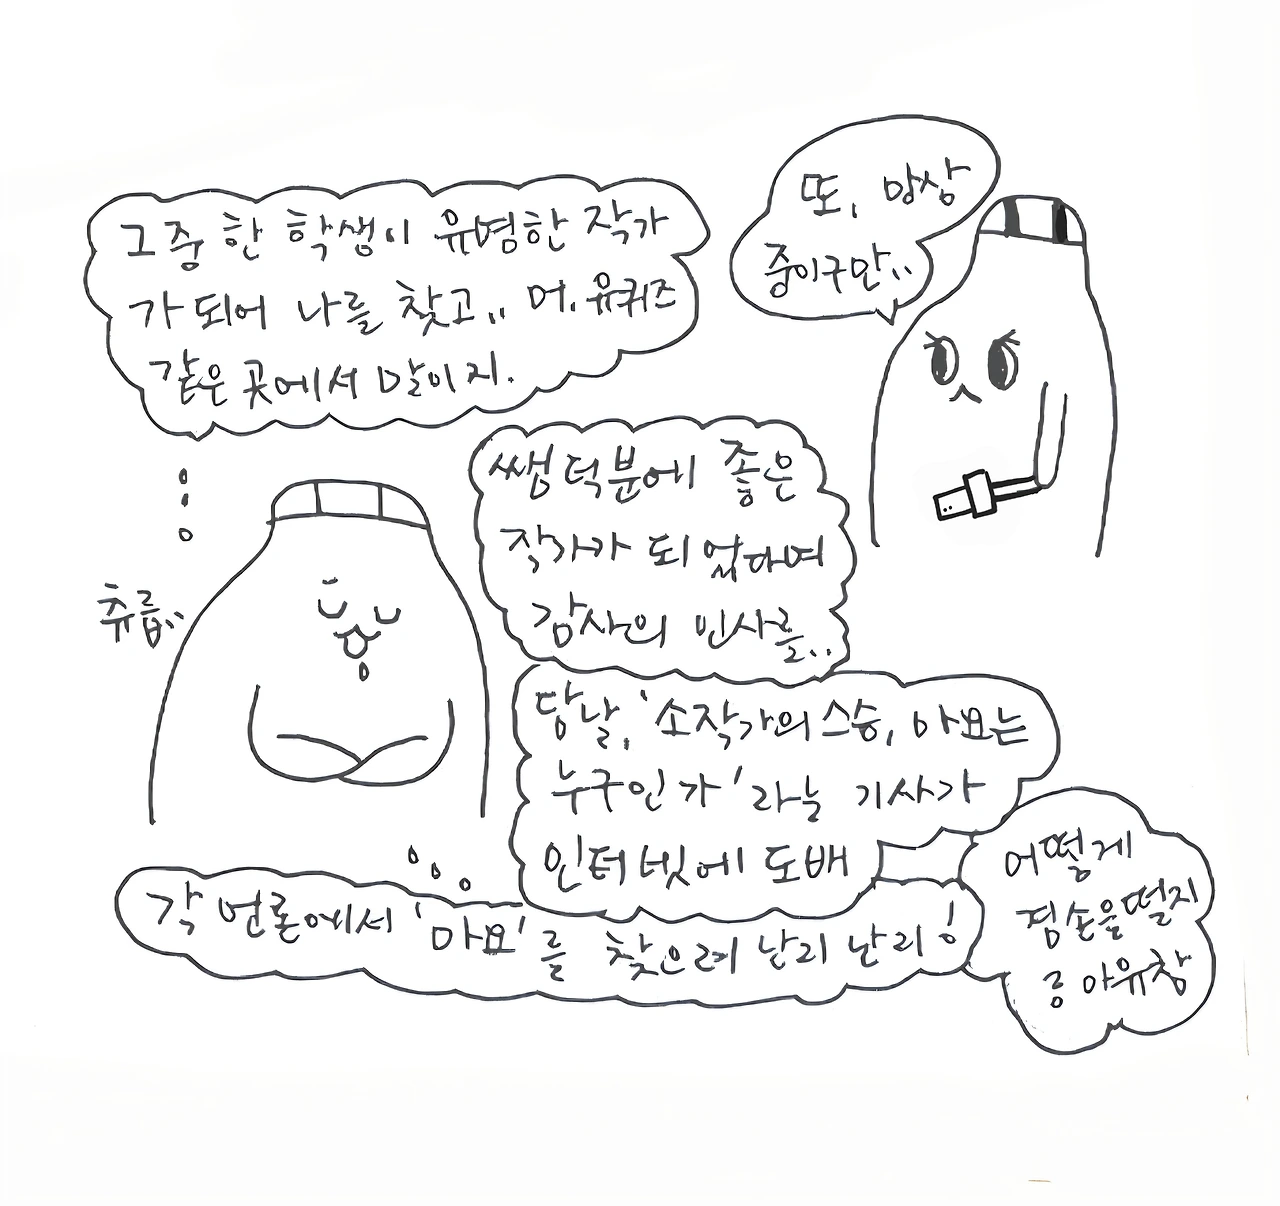 그중 한 학생이 유명한 작가
가 되어 나를 찾고.. 머. 유퀴즈
같은 곳에서 말이지.
또, 망상
중이구만..
쌤 덕분에 좋은
작가가 되었다며
감사의 인사를..
츄릅..
당날, '소작가의 스승, 야요는
누구인가' 라는 기사가
인터넷에 도배
각 언론에서 '야요'를 찾으려 난리 난리!
어떻게
겸손을 떨지